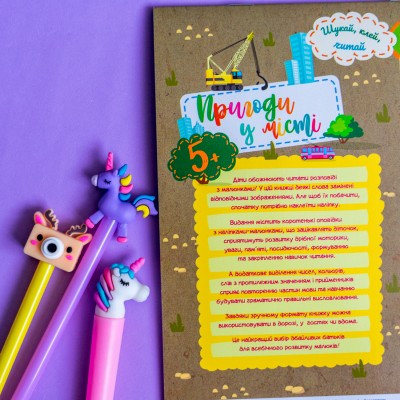 Шукай, клей,
читай
Пригоди
у місті
5+
Діти обожнюють читати розповіді
з малюнками! У цій книжці деякі слова замінені
відповідними зображеннями. Але щоб їх побачити,
спочатку потрібно наклеїть наліпку.
Видання містить коротенькі оповідки
з наліпками-малюнками, що зацікавлять діточок,
сприятимуть розвитку дрібної моторики,
уваги, пам'яті, посидючості, формуванню
та закріпленню навичок читання.
А додаткове виділення чисел, кольорів,
слів з протилежним значенням і прийменників
сприяє повторенню частин мови та навчанню
будувати граматично правильні висловлювання.
Завдяки зручному формату книжку можна
використовувати в дорозі, у гостях чи вдома.
Це найкращий вибір дбайливих батьків
для всебічного розвитку малюків!